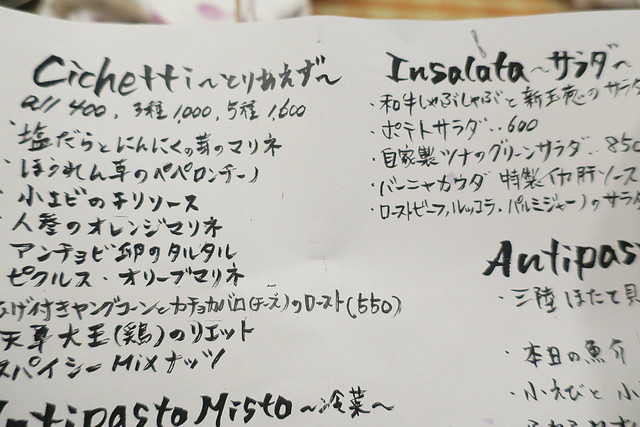 Cichetti〜とりあえず〜
all 400、3種1,000、5種1,600
・塩だらとにんにくの芽のマリネ
・ほうれん草のペペロンチーノ
・小エビのチリソース
人参のオレンジマリネ
アンチョビ卵のタルタル
ピクルス・オリーブマリネ
ひげ付きヤングコーンとカチョカバロ(チーズ)のロースト(550)
天草大王(鶏)のリエット
スパイシーMixナッツ
Antipasto Misto〜冷菜〜
Insalata〜サラダ〜
・和牛しゃぶしゃぶと新玉葱のサラダ
・ポテトサラダ‥600
・自家製ツナのグリーンサラダ‥850
・バーニャカウダ 特製イカ肝ソース
・ローストビーフ(ルッコラ・パルミジャーノ)のサラダ
Antipas
・三陸 ほたて貝
・本日の魚介
・小えびと小